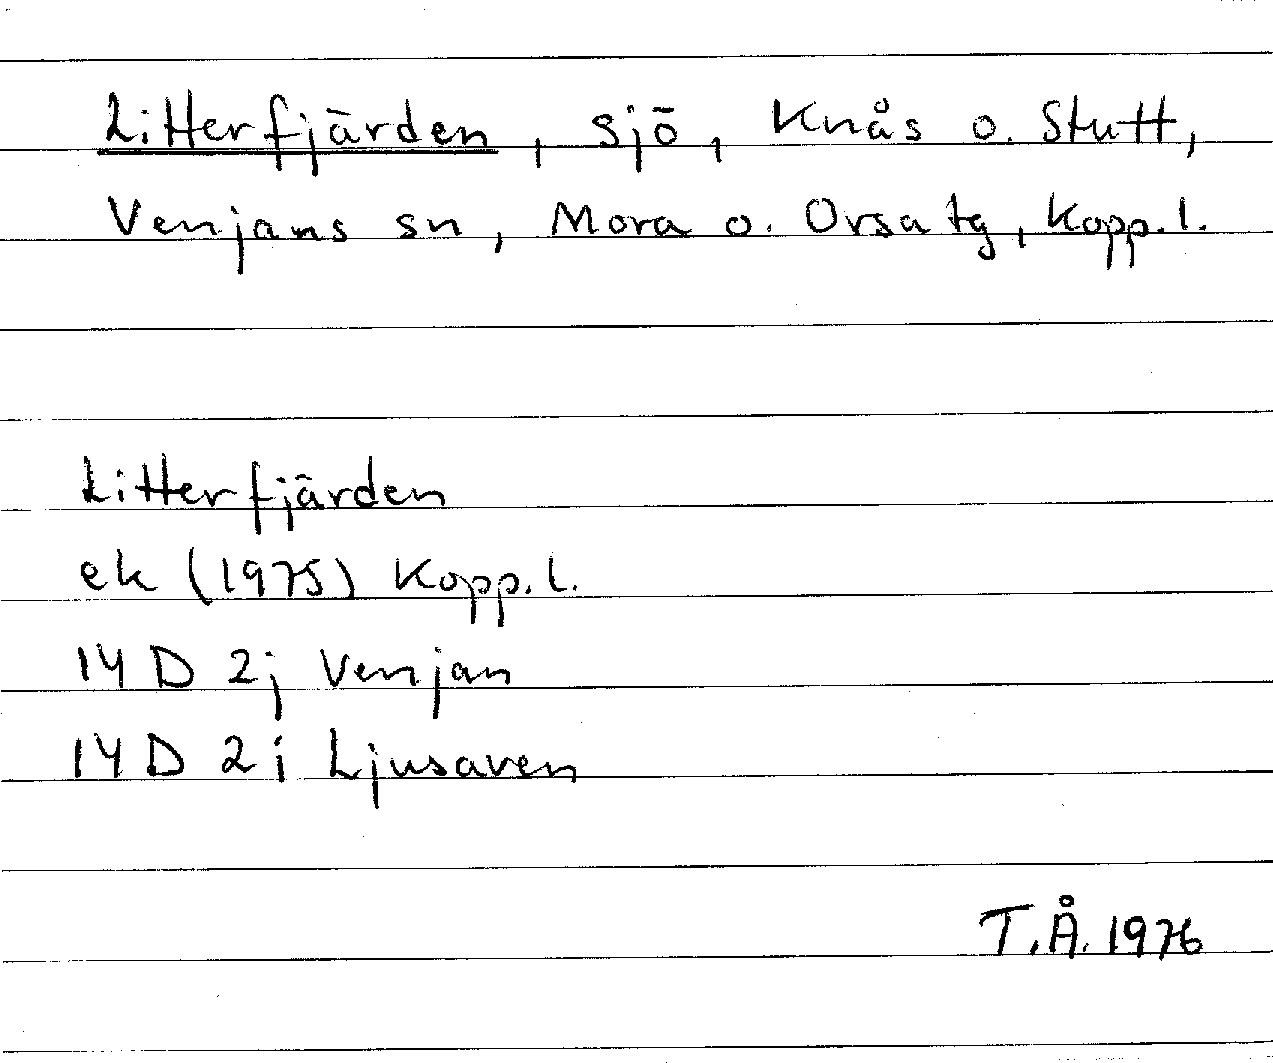 Litterfjärden, sjö, Knås o. Stutt,
Venjans sn, Mora o. Orsa tg, Kopp. l.
Litterfjärden
ek (1975) Kopp. l.
14 D 2j Venjan
14 D 2i Ljusaven
T.Å. 1976